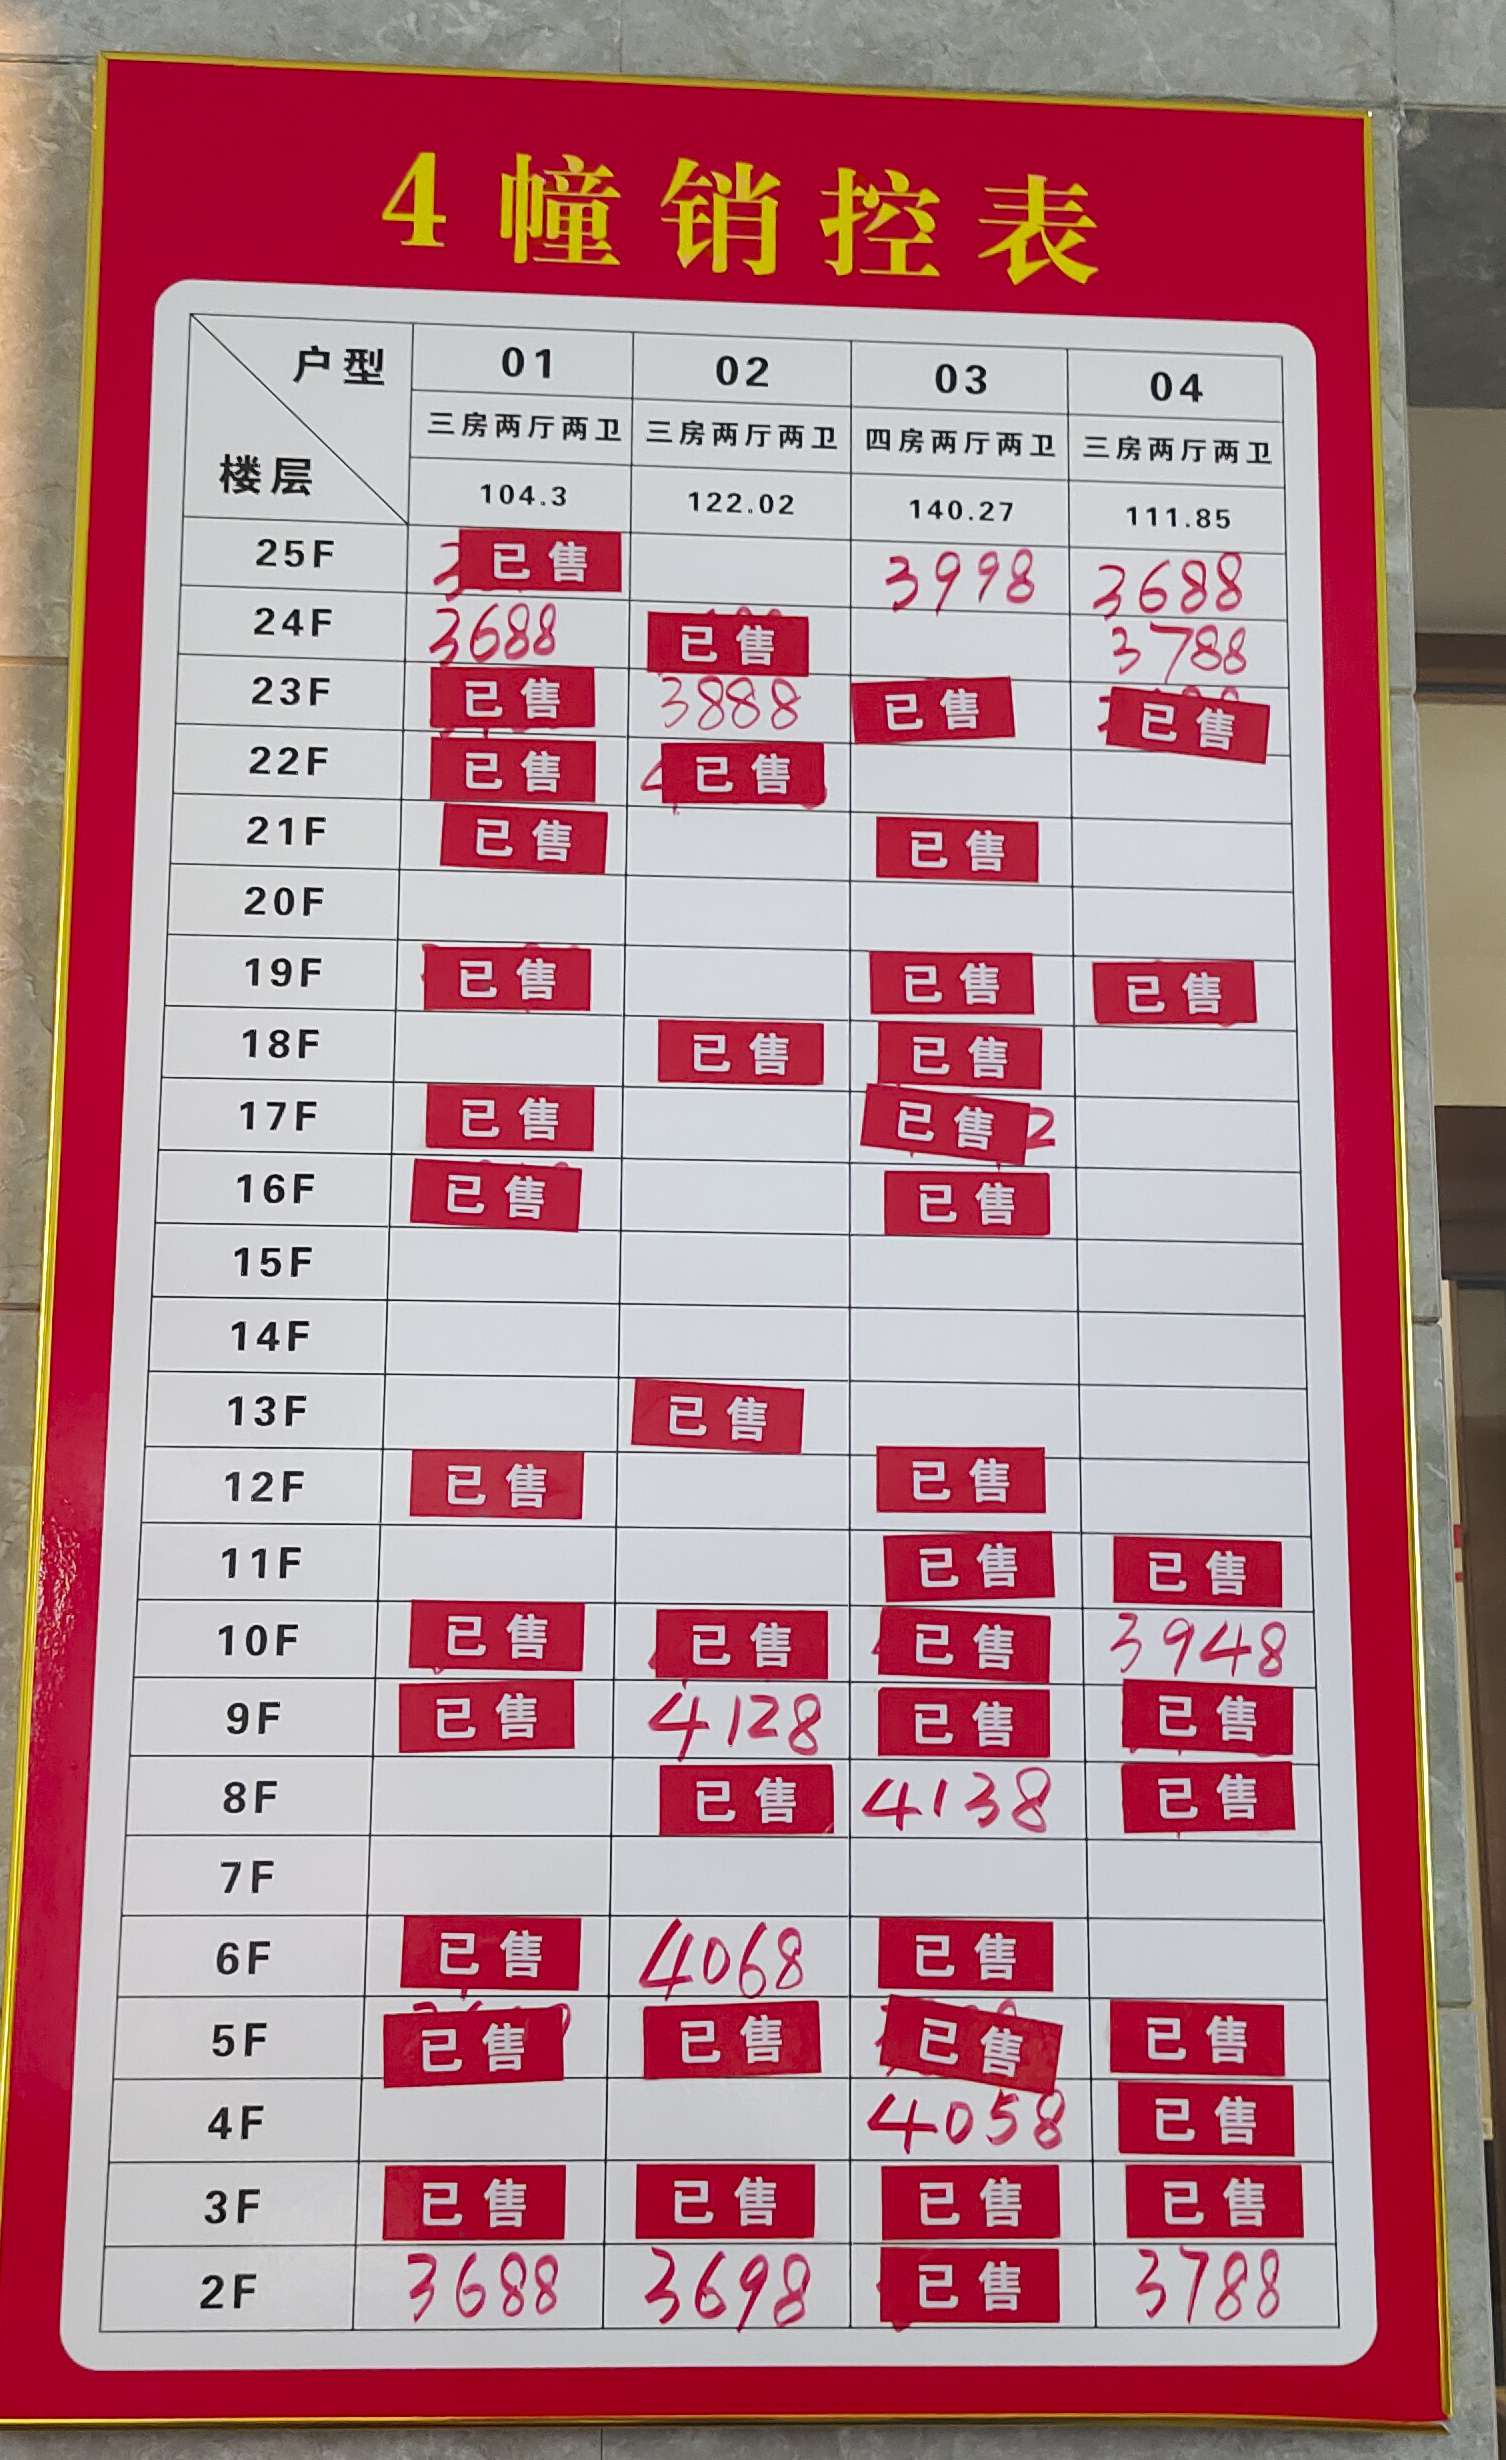 4幢销控表
户型 01 02 03 04
三房两厅两卫 三房两厅两卫 四房两厅两卫 三房两厅两卫
楼层 104.3 122.02 140.27 111.85
25F 已售 3998 3688
24F 3688 已售 3788
23F 已售 3888 已售 已售
22F 已售 已售
21F 已售 已售
20F
19F 已售 已售 已售
18F 已售 已售
17F 已售 已售 2
16F 已售 已售
15F
14F
13F 已售
12F 已售 已售
11F 已售 已售
10F 已售 已售 已售 3948
9F 已售 4128 已售 已售
8F 已售 4138 已售
7F
6F 已售 4068 已售
5F 已售 已售 已售 已售
4F 4058 已售
3F 已售 已售 已售 已售
2F 3688 3698 已售 3788